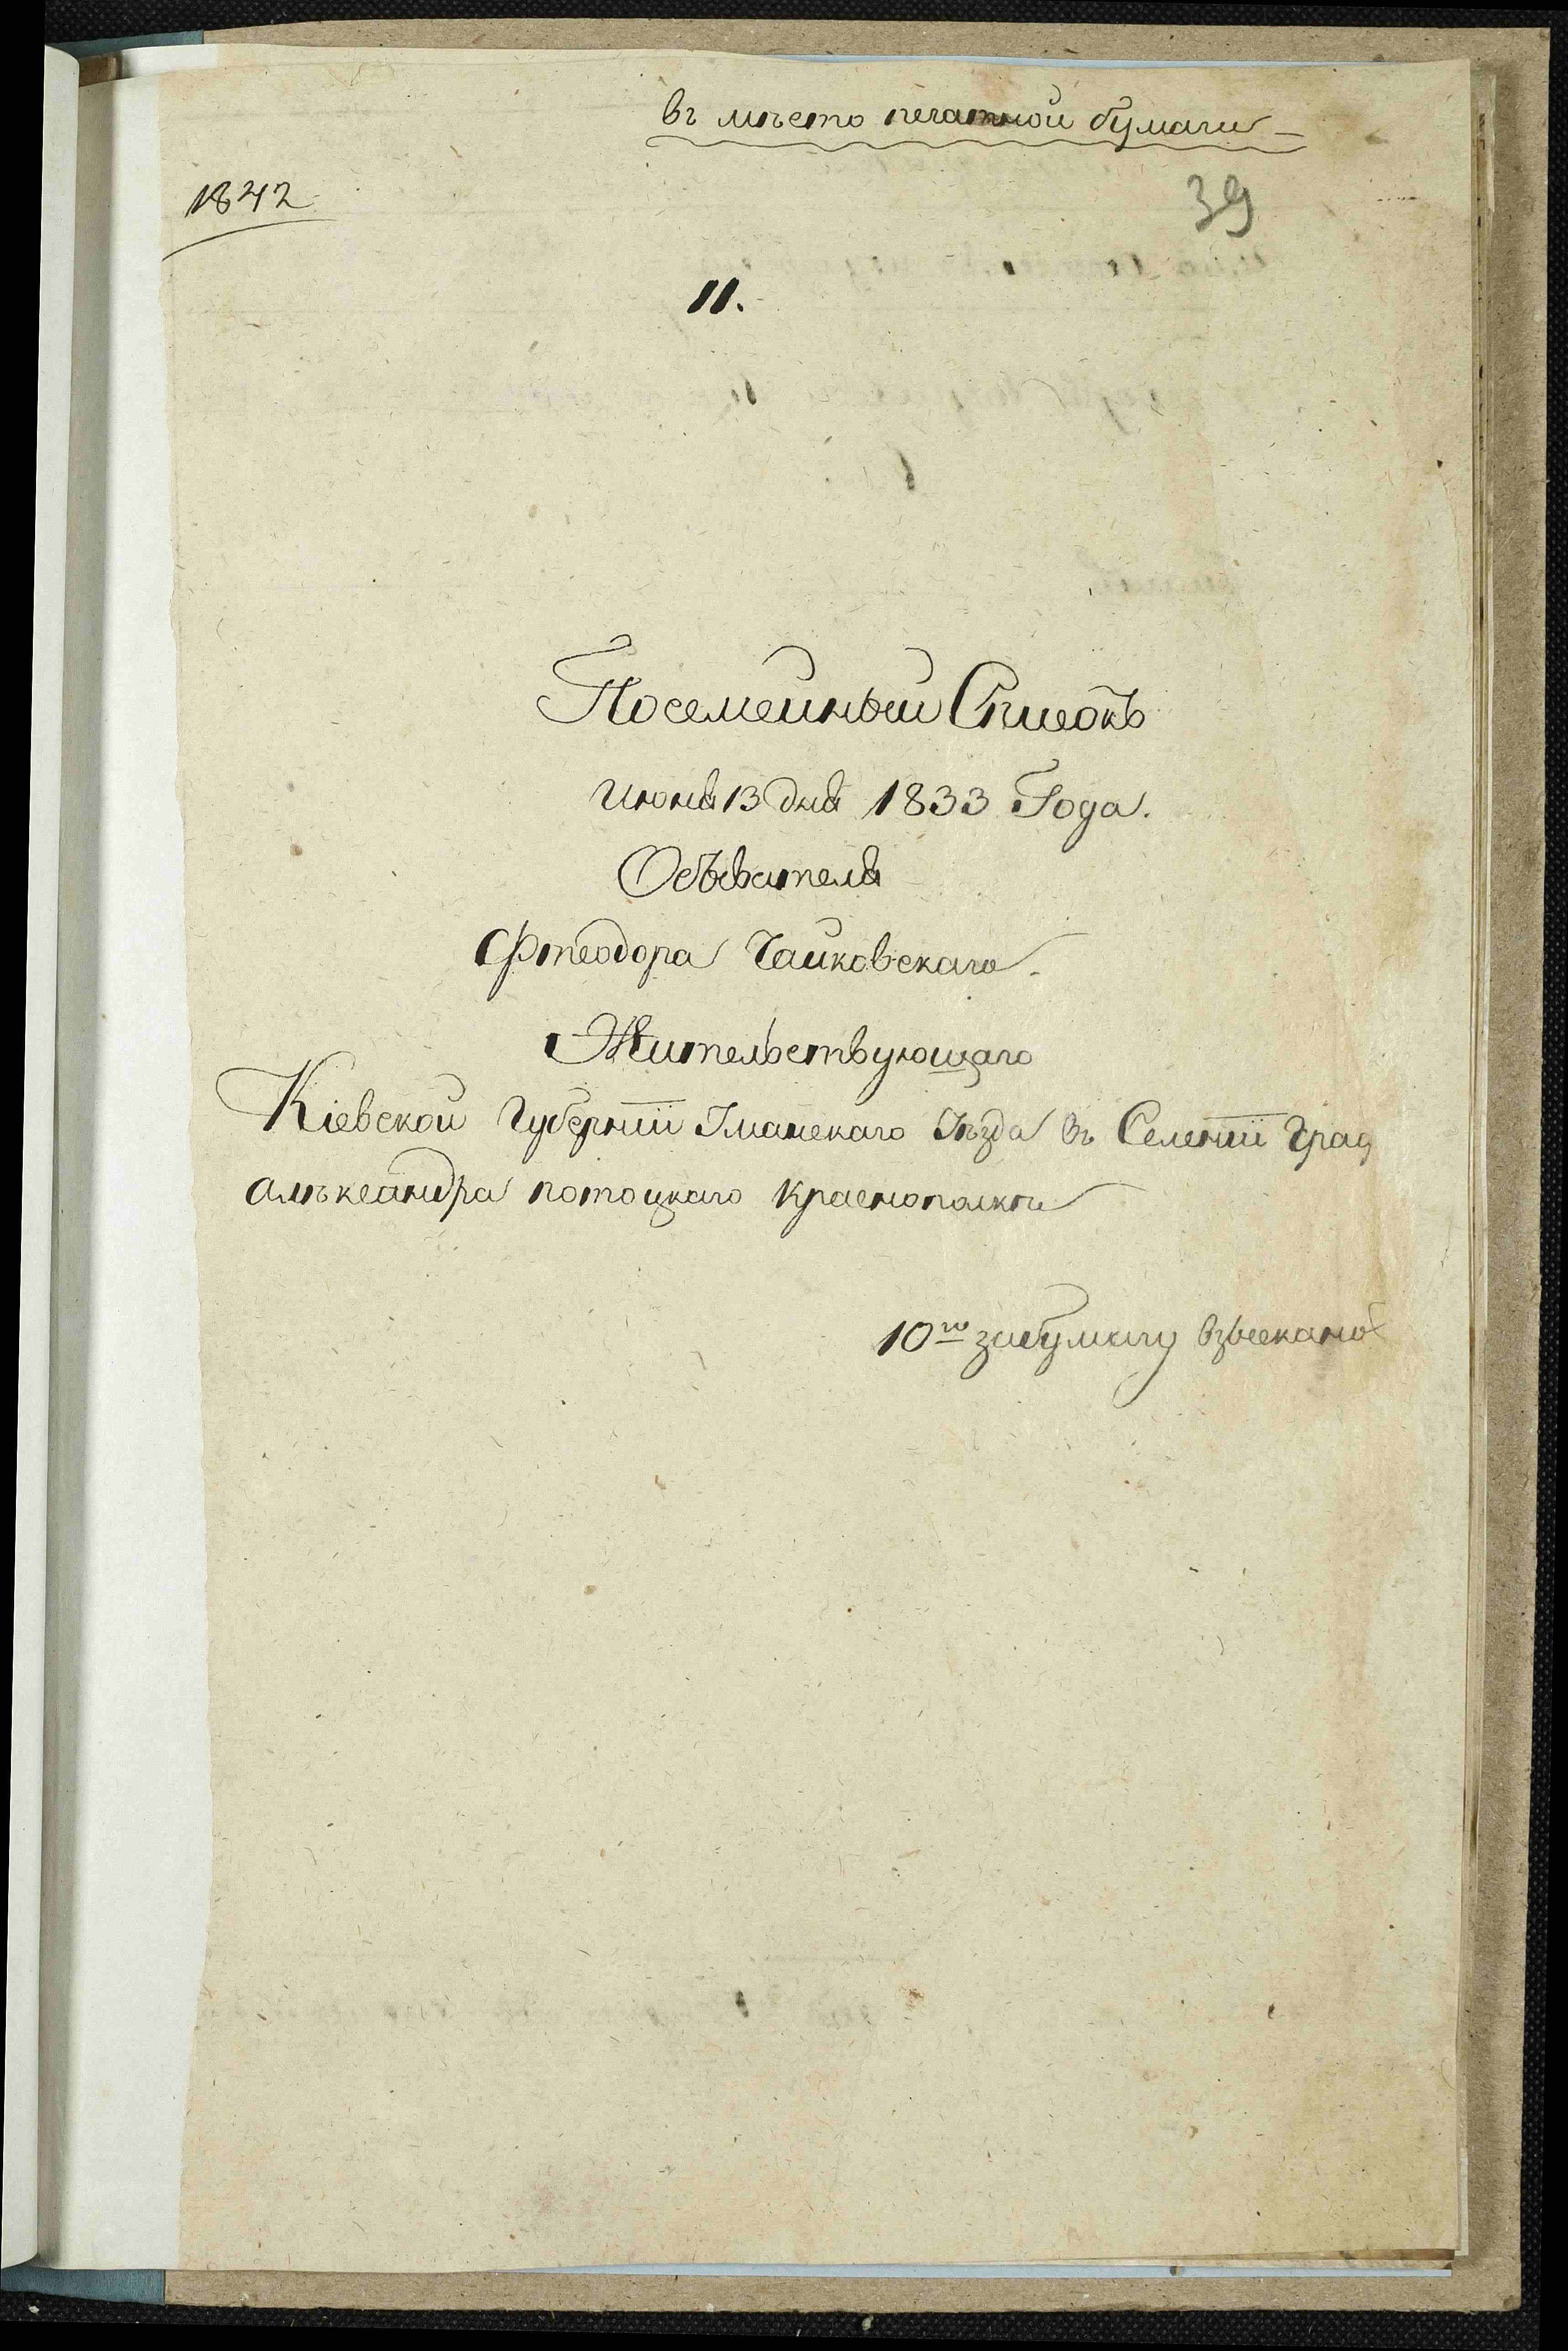 въ мѣсто печатной бумаги
1842
39
11.
Посемейный Списокъ
Июня 13 дня 1833 Года.
Обывателя
Фтеодора Чайковскаго.
Жительствующаго
Кіевской Губерніи Уманскаго Уѣзда въ Селеніи Граф
Алѣксандра потоцкаго Краснополки
10го забумагу взыскано